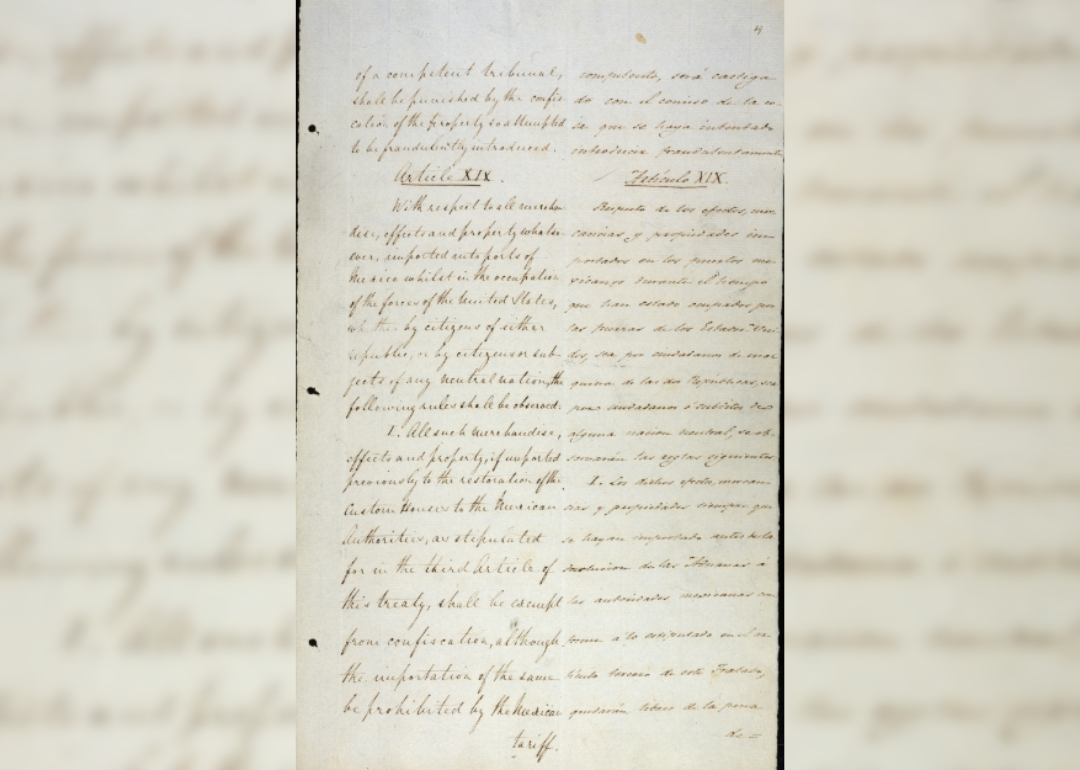 of a competent tribunal,
shall be punished by the confis-
cation of the property so attempted
to be fraudulently introduced.
Article XIX.
With respect to all merchan
dise, effects and property whatso-
ever, imported into ports of
Mexico whilst in the occupation
of the forces of the United States,
whether by citizens of either
republic, or by citizens or sub-
jects of any neutral nation, the
following rules shall be observed:
I. All such merchandise,
effects and property, if imported
previously to the restoration of the
Custom Houses to the Mexican
Authorities, as stipulated
for in the third Article of
this treaty, shall be exempt
from confiscation, although
the importation of the same
be prohibited by the Mexican
tariff.
competente, será castiga
do con el comiso de la co-
sa que se haya intentado
introducir fraudulentamente
Artículo XIX.
Respecto de los efectos, mer
cancías y propiedades im
portados en los puertos me
xicanos durante el tiempo
que han estado ocupados por
las fuerzas de los Estados Uni
dos, sea por ciudadanos de cual
quiera de las dos Repúblicas, sea
por ciudadanos ó súbditos de
alguna nación neutral, se ob-
servarán las reglas siguientes
I. Los dichos efectos, mercan
cías y propiedades siempre que
se hayan importado antes de la
devolucion de las Aduanas á
las autoridades mexicanas con
forme a lo estipulado en el ar
tículo tercero de este Tratado,
quedarán libres de la pena
de =